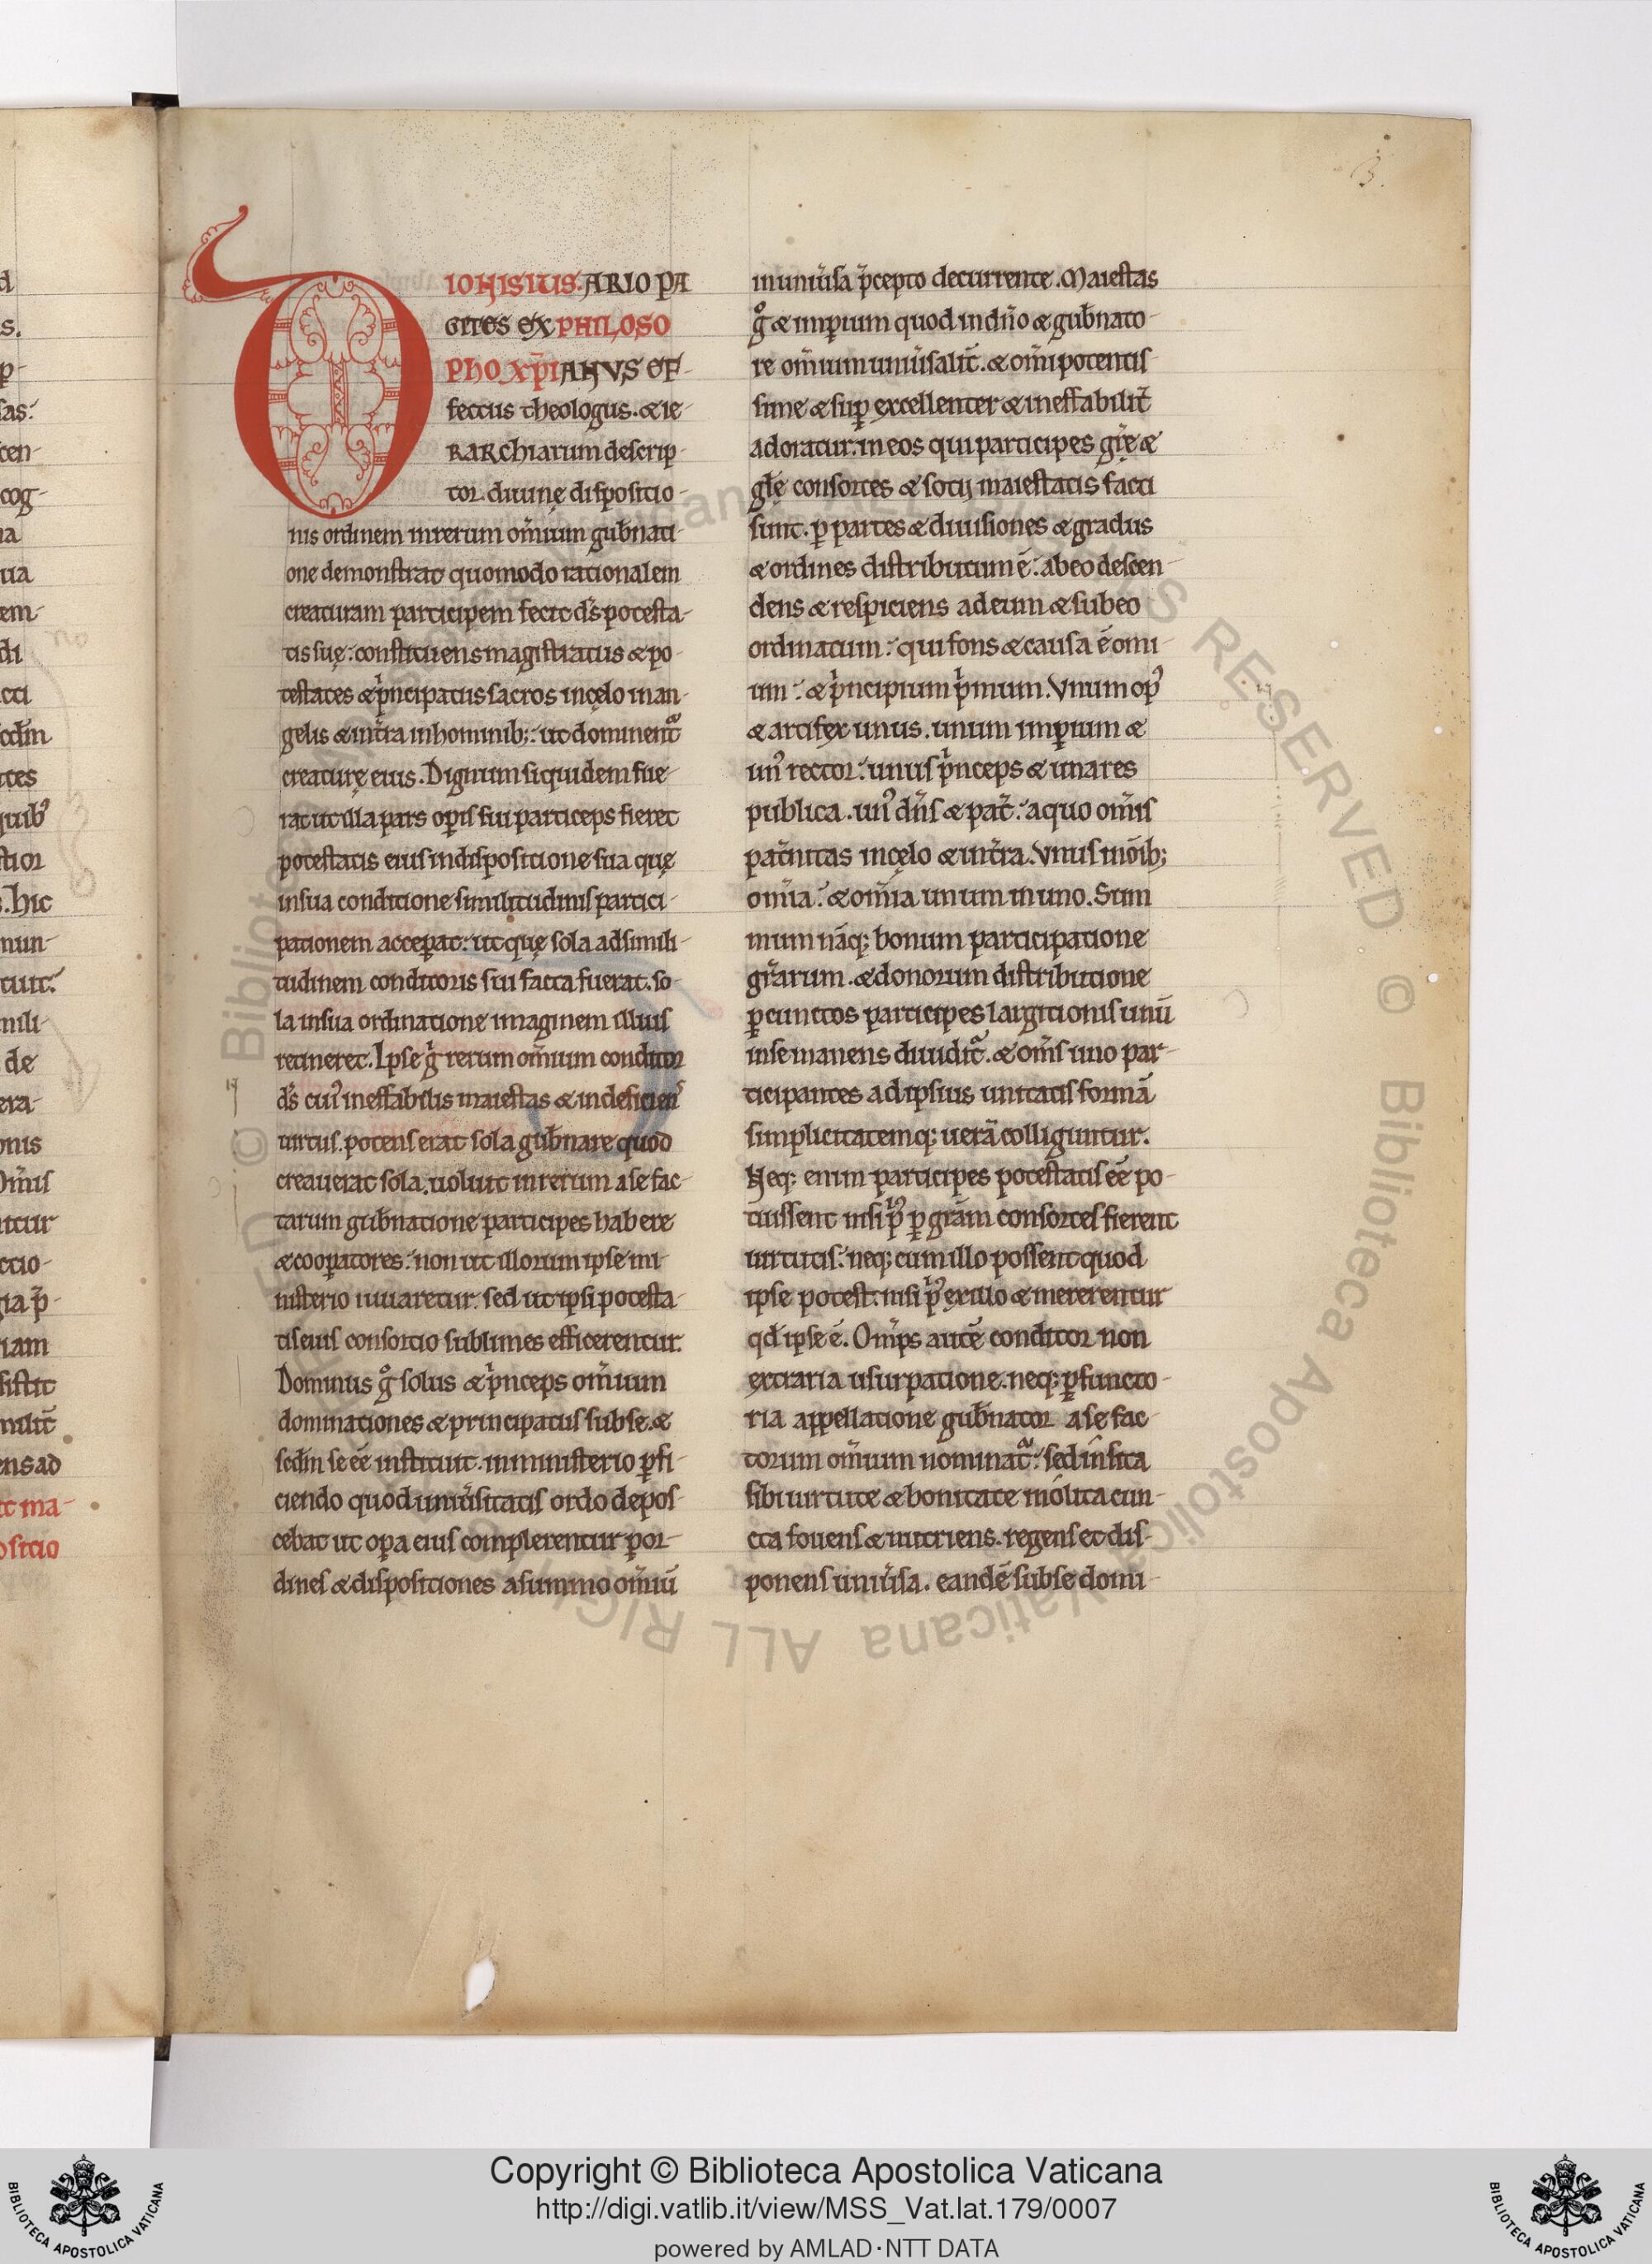 3.
DIONISIUS. ARIOPA
GITES EX PHILOSO
PHO XP̄IANVS EF-
fectus theologus. & ie-
RARChiarum descrip-
tor. diuinę dispositio-
nis ordinem in rerum om̄ium gub̄nati-
one demonstrat quomodo rationalem
creaturam participem fecit ds̄ potesta-
tis suę: constituens magistratus & po-
testates & p̄ncipatus sacros in cęlo in an-
gelis & in tr̄a in hominib;: ut dominent̄
creaturę eius. Dignum siquidem fue-
rat ut illa pars op̲is sui particeps fieret
potestatis eius in dispositione sua quę
in sua conditione similitudinis partici-
pationem accep̲at: ut quę sola ad simili-
tudinem conditoris sui facta fuerat. so-
la in sua ordinatione imaginem illius
retineret. Ipse gͥ rerum om̄ium conditor
ds̄ cuiꝰ ineffabilis maiestas & indeficiens
uirtus. potens erat sola gub̄nare quod
creauerat sola. uoluit in rerum a se fac-
tarum gub̄natione participes habere
& coop̲atores: non ut illorum ipse mi-
nisterio iuuaretur. sed ut ipsi potesta-
tis eius consortio sublimes efficerentur.
Dominus gͦ solus & p̄nceps om̄ium
dominationes & principatus sub se. &
sed̄m se eē instituit. in ministerio p̲fi-
ciendo quod uniu̅sitatis ordo depos-
cebat ut op̲a eius complerentur p̲ or-
dines & dispositiones a summo om̄iū
in uniu̅sa p̄cepto decurrente. Maiestas
gͦ & imp̲ium quod in dn̄o & gub̄nato-
re om̄ium uniu̅salit̄. & om̄ipotentis-
sime & sup̲ excellenter & ineffabilit̄
adoratur: in eos qui participes gr̄ę &
gl̄ę consortes & socij maiestatis facti
sunt. p̲ partes & diuisiones & gradus
& ordines distributum ē: ab eo descen-
dens & respiciens ad eum & sub eo
ordinatum: qui fons & causa ē omi-
um: & p̄ncipium p̄mum. Vnum opꝰ
& artifex unus. unum imp̲ium &
unꝰ rector: unus p̄nceps & una res
publica. unꝰ dn̄s & pat̄: a quo om̄is
pat̄nitas in cęlo & in tr̄a. Vnus in oīb;
om̄ia: & om̄ia unum in uno. Sum
mum nāq; bonum participatione
gr̄arum. & donorum distributione
p̲ cunctos participes largitionis unū
in se manens diuidit̄. & om̄s uno par-
ticipantes ad ipsius unitatis formā
simplicitatemq; uerā colliguntur.
Neq; enim participes potestatis eē po-
tuissent nisi pͥꝰ p̲ gr̄am consortes fierent
uirtutis: neq; cum illo possent quod
ipse potest. nisi pͥꝰ ex illo & mererentur
qd̄ ipse ē. Om̄ps autē conditor non
extraria usurpatione. neq; p̲functo-
ria appellatione gub̄nator a se fac-
torum om̄ium nominat̄: sed insita
sibi uirtute & bonitate inolita cun-
cta fouens & nutriens. regens et dis-
ponens uniu̅sa. eandē sub se domi-
Copyright © Biblioteca Apostolica Vaticana
http://digi.vatlib.it/view/MSS_Vat.lat.179/0007
powered by AMLAD·NTT DATA